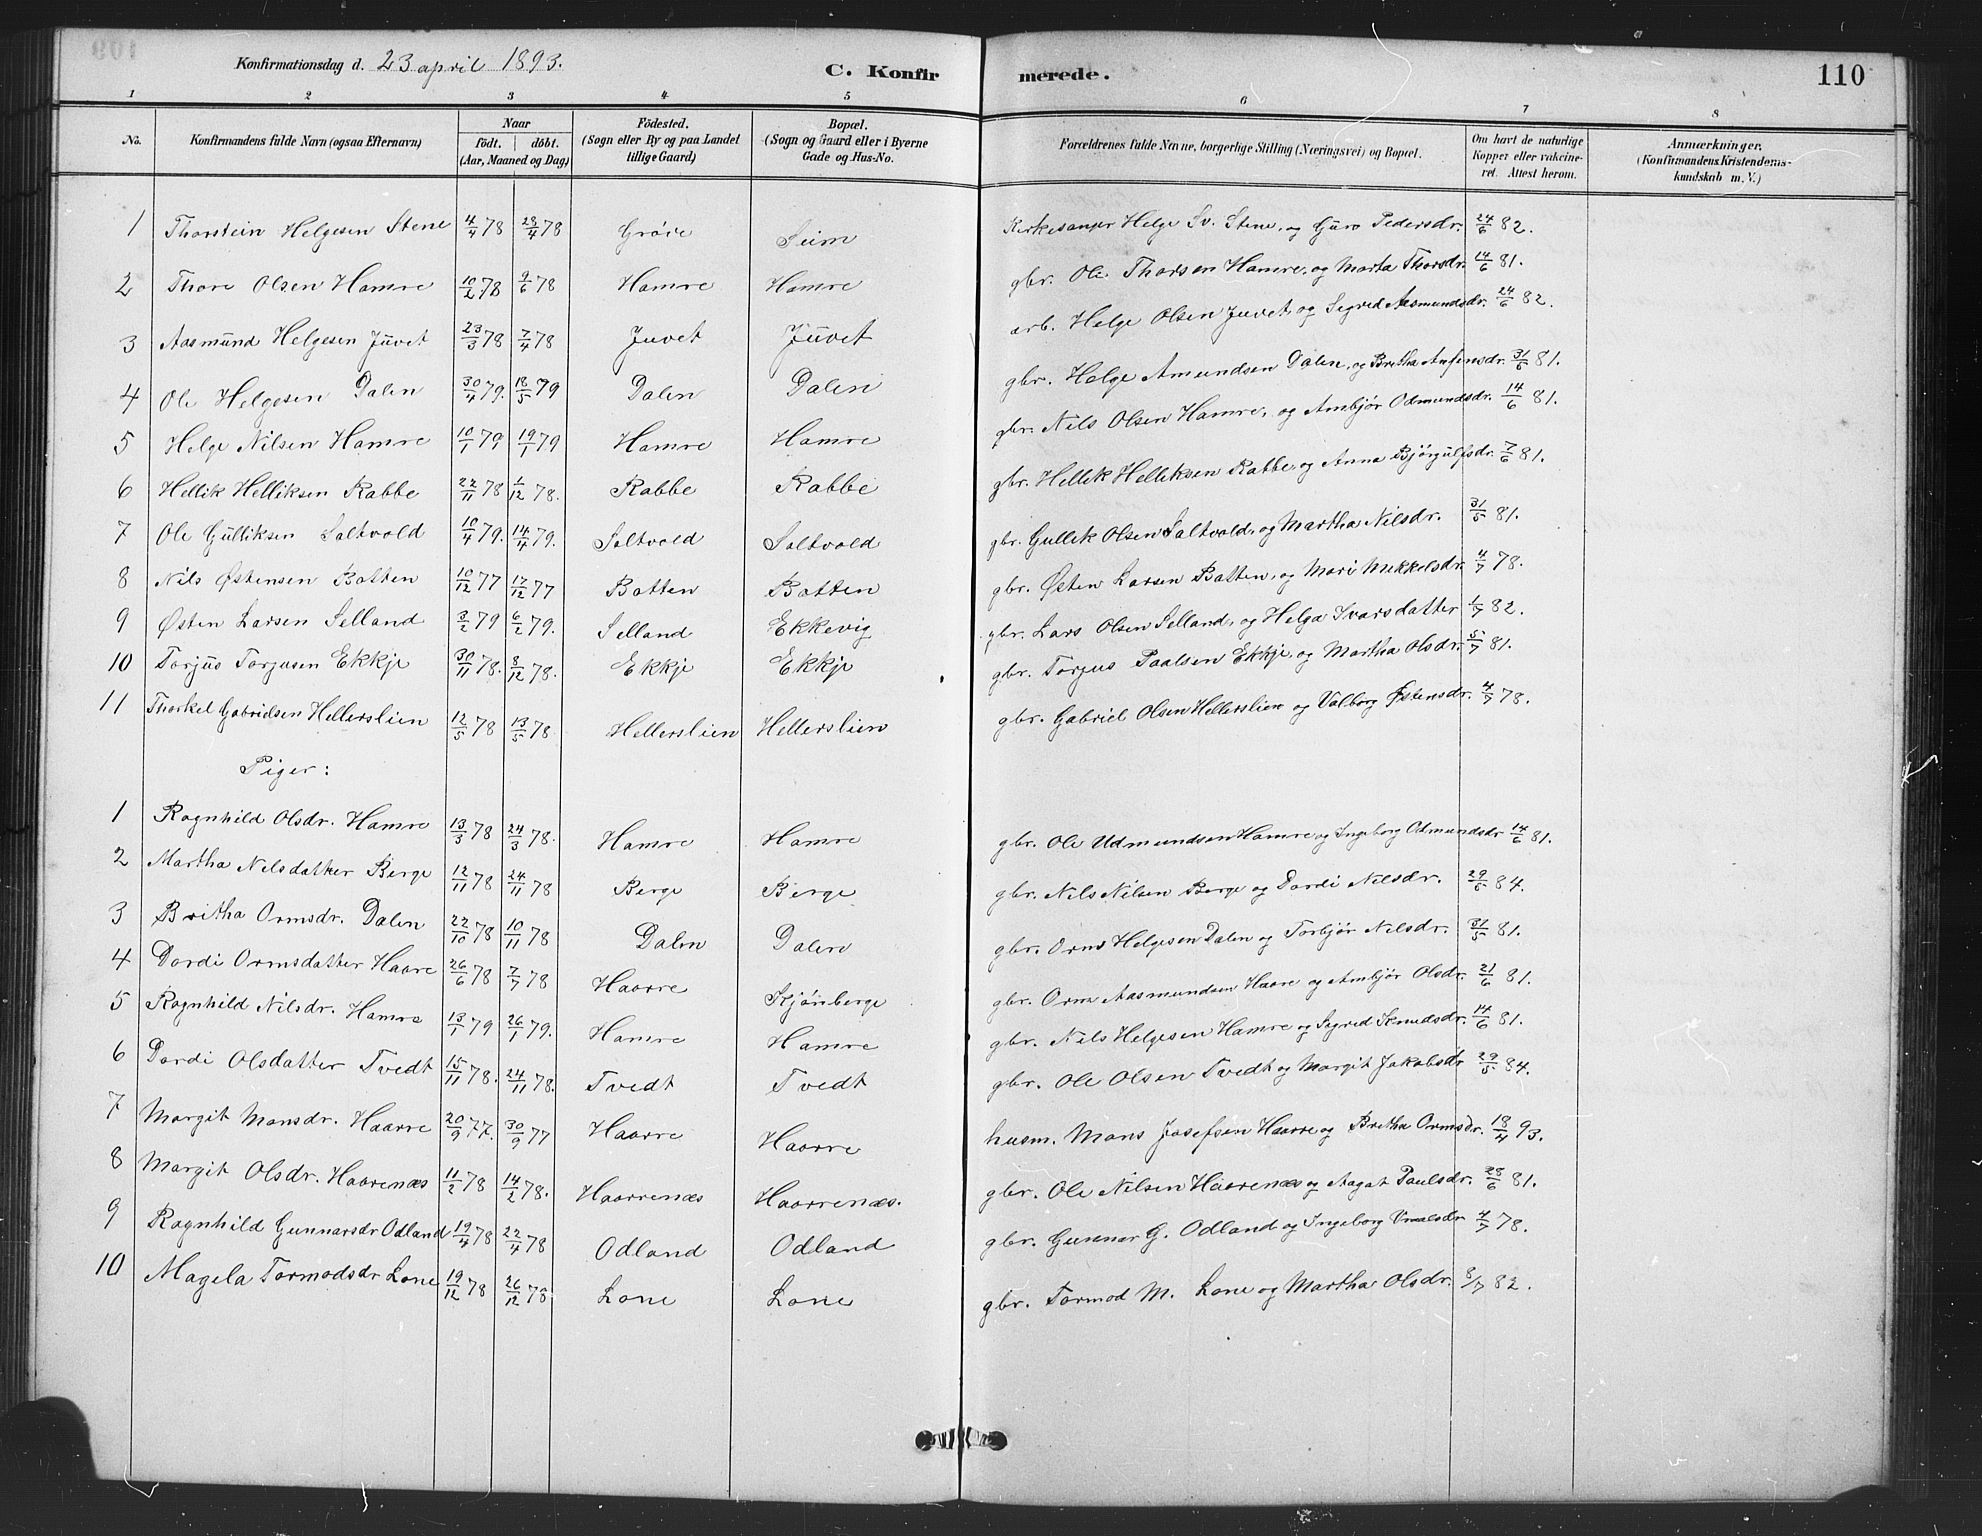 Konfirmationsdag d. 23 april 1893. C. Konfirmerede. 110
1 2 3 4 5 6 7 8
No. Konfirmandens fulde Navn (ogsaa Efternavn) Naar födt. döbt. (Aar, Maaned og Dag) Födested. (Sogn eller By og paa Landet tillige Gaard) Bopæl. (Sogn og Gaard eller i Byerne Gade og Hus-No. Forældrenes fulde Navne, borgerlige Stilling (Næringsvei) og Bopæl. Om havt de naturlige Kopper eller vakcineret. Attest herom. Anmærkninger. (Konfirmandens Kristendomskundskab m. V.)
1 Thorstein Helgesen Stene 4/4 78 28/4 78 Gröve Seim Kirkesanger Helge Sv. Stene, og Guro Pedersdr. 24/6 82.
2 Thore Olsen Hamre 10/2 78 9/6 78 Hamre Hamre gbr. Ole Thorsen Hamre, og Marta Thorsdr. 14/6 81.
3 Aasmund Helgesen Juvet 23/3 78 7/4 78 Juvet Juvet arb. Helge Olsen Juvet, og Sigrid Aasmundsdr. 24/6 82.
4 Ole Helgesen Dalen 30/4 79. 18/5 79 Dalen Dalen gbr. Helge Amundsen Dalen, og Britha Anfinsdr. 31/5 81.
5 Helge Nilsen Hamre 10/1 79 19/1 79 Hamre Hamre gbr. Nils Olsen Hamre, og Ambjör Odmundsdr. 14/6 81.
6 Hellik Helliksen Rabbe 22/11 78 1/12 78. Rabbe Rabbe gbr. Hellik Helliksen Rabbe, og Anna Bjørgulfsdr. 7/6 81.
7 Ole Gulliksen Saltvold 10/4 79. 14/4 79. Saltvold Saltvold gbr. Gullik Olsen Saltvold, og Martha Nilsdr. 31/5 81.
8 Nils Østensen Botten 10/12 77 17/12 77 Botten Botten gbr. Østen Larsen Botten, og Mari Mikkelsdr. 4/7 78.
9 Østen Larsen Selland 3/2 79 6/2 79. Selland Ekkevig gbr. Lars Olsen Selland, og Helga Ivarsdatter 1/7 82.
10 Torjus Torjusen Ekkje 30/11 78. 8/12 78. Ekkje Ekkje gbr. Torjus Paalsen Ekkje, og Martha Olsdr. 5/7 81.
11 Thorkel Gabrielsen Hellerslien 12/5 78 13/5 78 Hellerslien Hellerslien gbr. Gabriel Olsen Hellerslien og Valborg Østensdr. 4/7 78.
Piger:
1 Ragnhild Olsdr. Hamre 13/3 78 24/3 78. Hamre Hamre gbr. Ole Udmundsen Hamre og Ingeborg Odmundsdr 14/6 81.
2 Martha Nilsdatter Berge 12/11 78 24/11 78 Berge Berge gbr. Nils Nilsen Berge og Dordi Nilsdr. 29/5 84.
3 Britha Ormsdr. Dalen 22/10 78 10/11 78 Dalen Dalen gbr. Orm Helgesen Dalen og Torbjör Nilsdr. 31/5 81.
4 Dordi Ormsdatter Haare 26/6 78 7/7 78 Haarre Skjönberge gbr. Orm Aasmundsen Haare og Ambjör Olsdr. 21/6 81.
5 Ragnhild Nilsdr. Hamre 13/1 79 26/1 79. Hamre Hamre gbr. Nils Helgesen Hamre og Sigrid Knudsdr. 14/6 81.
6 Dordi Olsdatter Tvedt 15/11 78. 24/11 78. Tvedt Tvedt gbr. Ole Olsen Tvedt og Margit Jakobsdr 29/5 84.
7 Margit Monsdr. Haarre 20/9 77. 30/9 77 Haarre Haarre husm. Mons Josefsen Haarre og Britha Ormsdr. 18/4 93.
8 Margit Olsdr. Haarenæs 11/2 78 14/2 78. Haarrenæs Haarrenæs. gbr. Ole Nilsen Haarenæs og Aagat Paulsdr. 28/6 81.
9 Ragnhild Gunnarsdr Odland 19/4 78 22/4 78 Odland Odland gbr. Gunnar G. Odland og Ingeborg 4/7 78.
10 Magela Tormodsdr Lone 19/12 78 26/12 78 Lone Lone gbr. Tormod M. Lone og Martha Olsdr. 8/7 82.